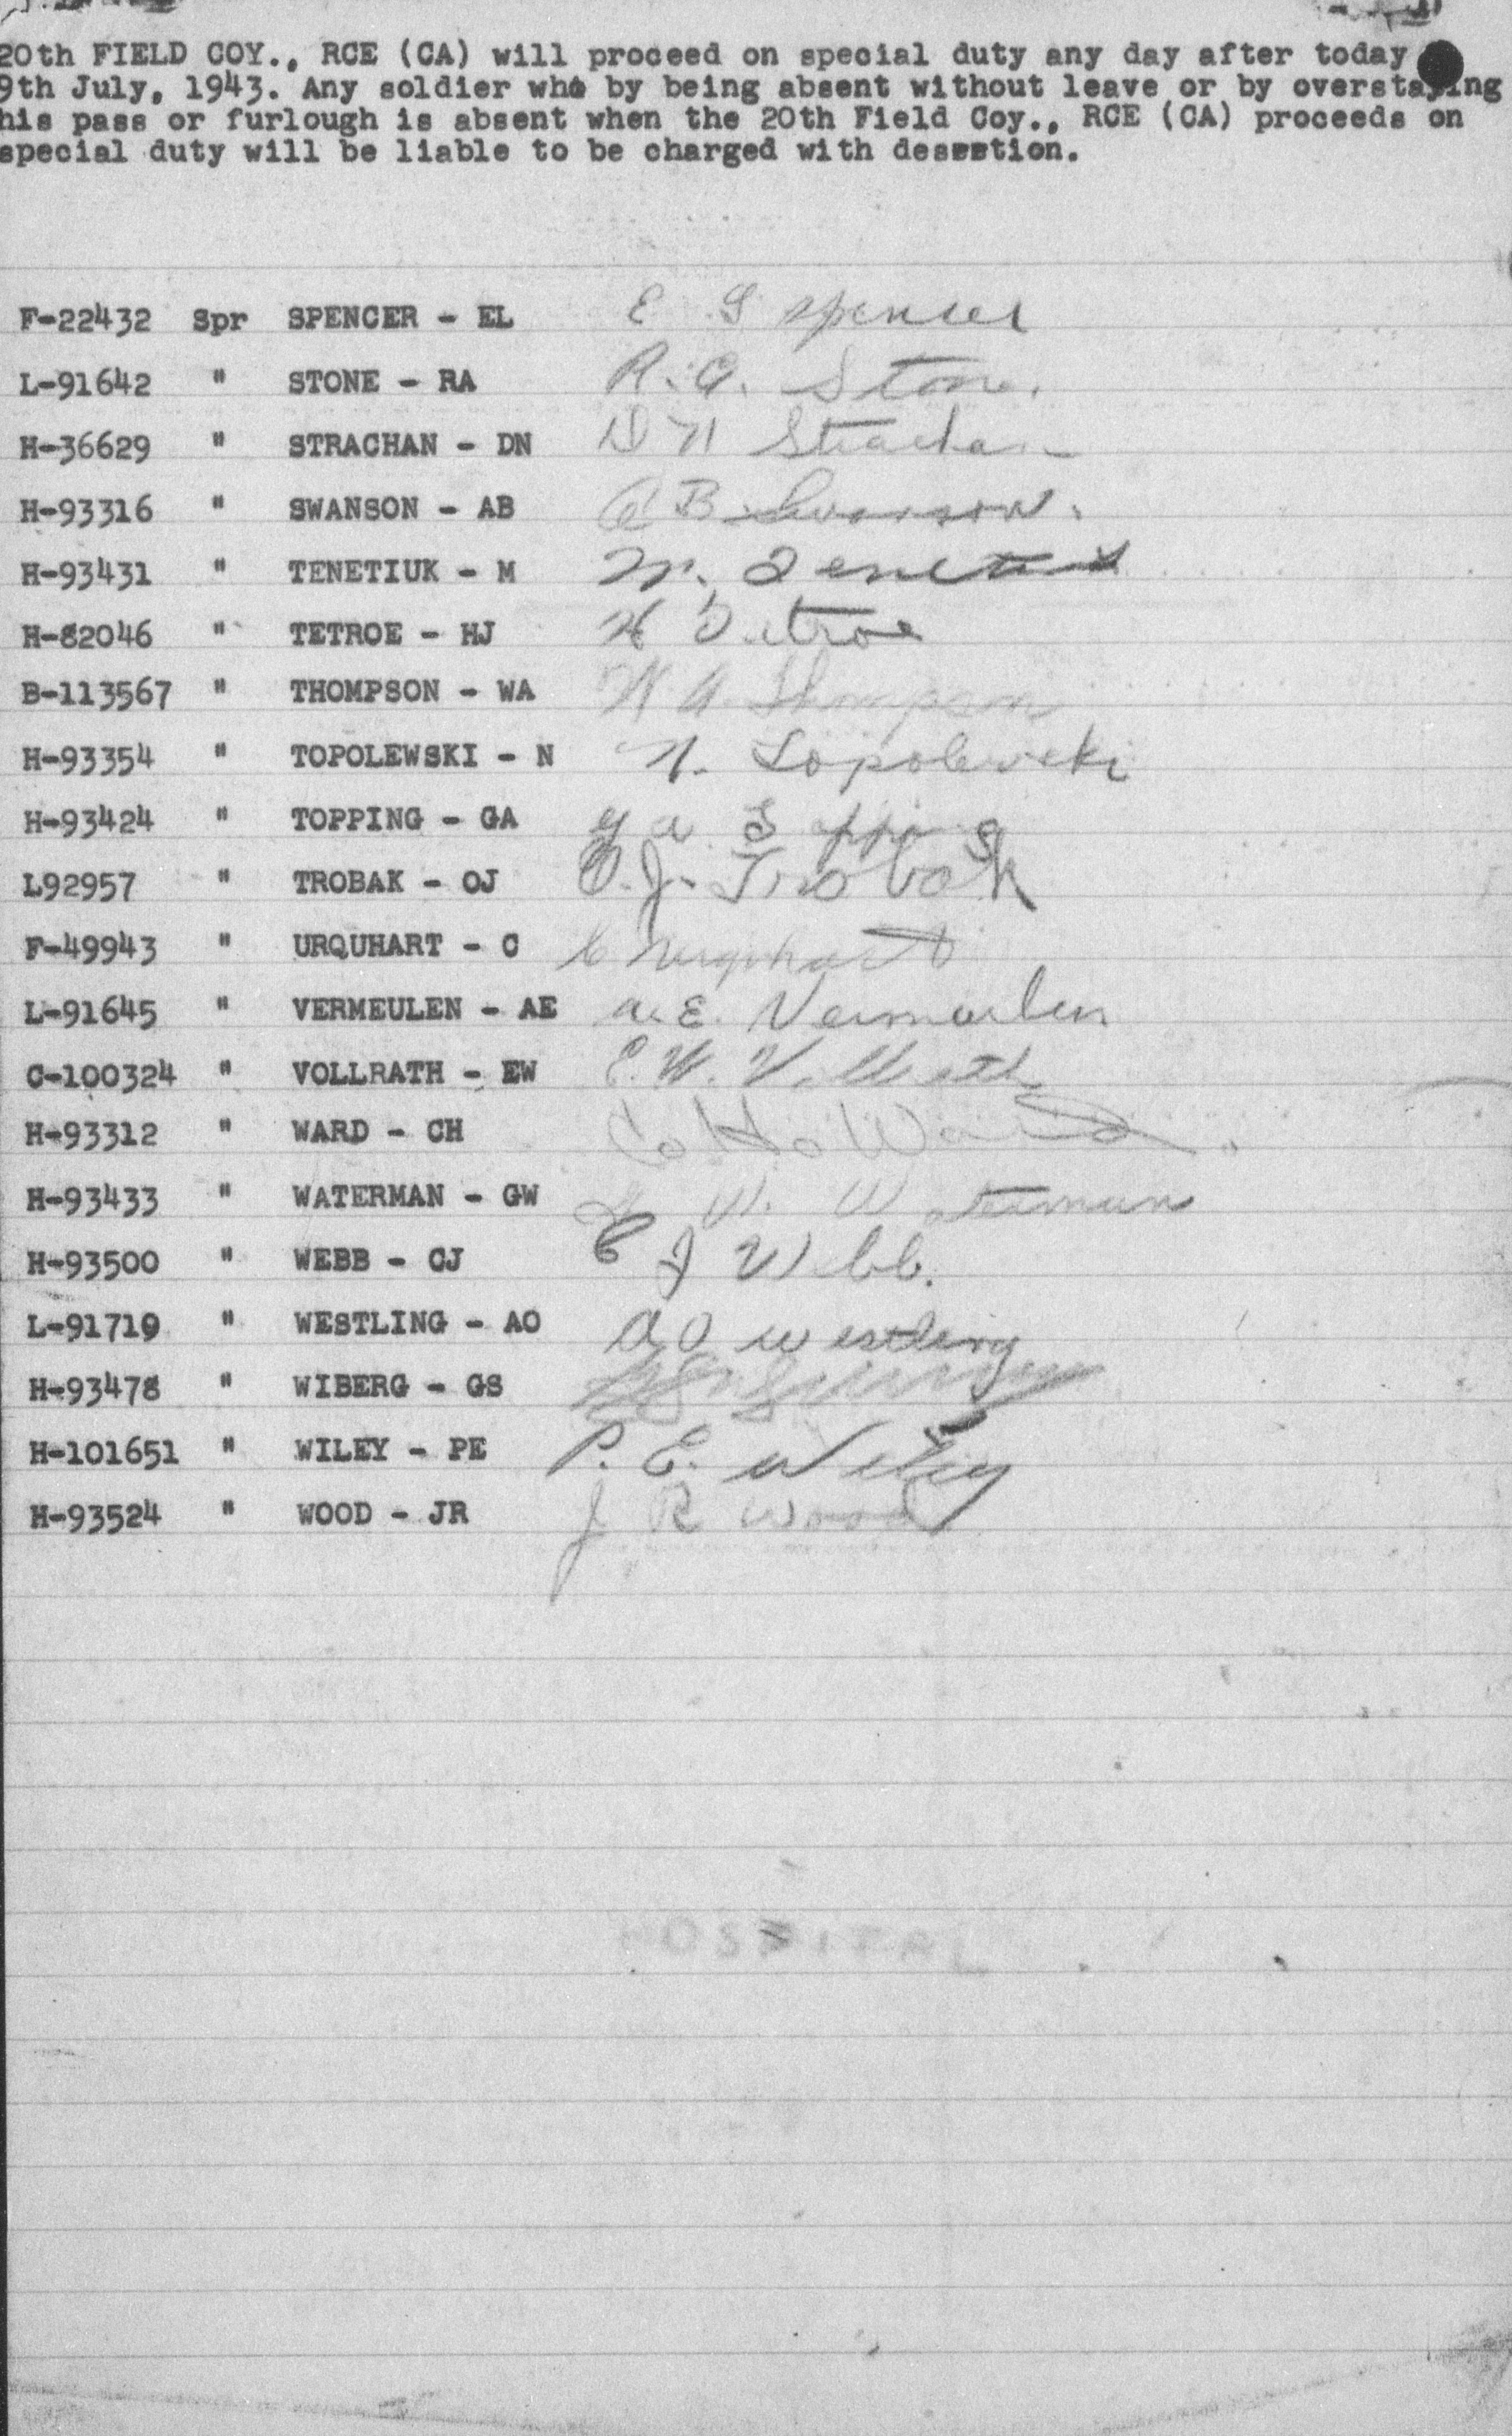 20th FIELD COY., RCE (CA) will proceed on special duty any day after today
9th July, 1943. Any soldier who by being absent without leave or by overstaying
his pass or furlough is absent when the 20th Field Coy., RCE (CA) proceeds on
special duty will be liable to be charged with desertion.
F-22432 Spr SPENCER - EL E L Spencer
L-91642 " STONE - RA R. A. Stone.
H-36629 " STRACHAN - DN D N Strachan
H-93316 " SWANSON - AB A B Swanson.
H-93431 " TENETIUK - M M. Tenetiuk
H-82046 " TETROE - HJ H Tetroe
B-113567 " THOMPSON - WA W A. Thompson
H-93354 " TOPOLEWSKI - N N. Topolewski
H-93424 " TOPPING - GA G A Topping
L92957 " TROBAK - OJ O. J. Trobak
F-49943 " URQUHART - C C Urquhart
L-91645 " VERMEULEN - AE A. E. Vermeulen
C-100324 " VOLLRATH - EW E. W. Vollrath
H-93312 " WARD - CH C. H. Ward
H-93433 " WATERMAN - GW G. W. Waterman
H-93500 " WEBB - CJ C J Webb.
L-91719 " WESTLING - AO A O Westling
H-93478 " WIBERG - GS
H-101651 " WILEY - PE P. E. Wiley
H-93524 " WOOD - JR J R Wood
HOSPITAL